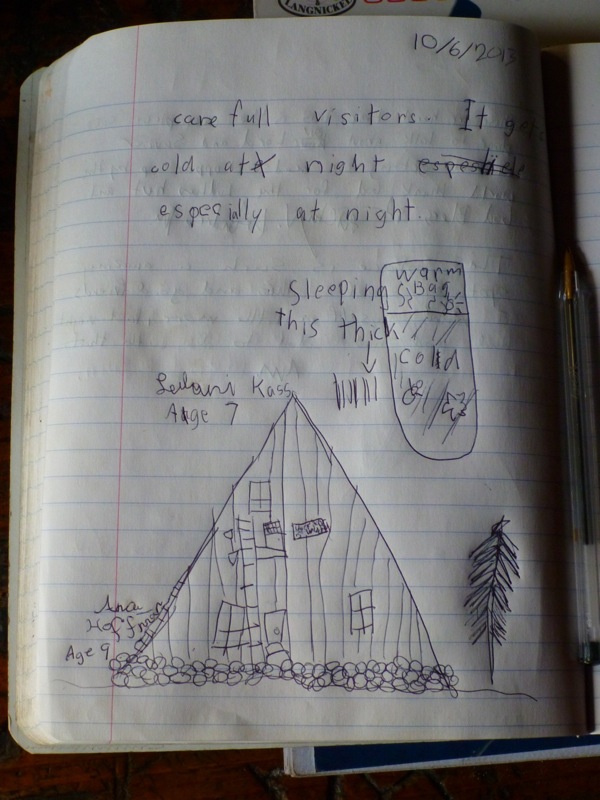 LANGNICKEL
10/6/2013
care full visitors. It gets
cold at night
especially at night.
Sleeping
this thick
warm
Bag
cold
Leilani Kass
Age 7
Ana
Hoffman
Age 9